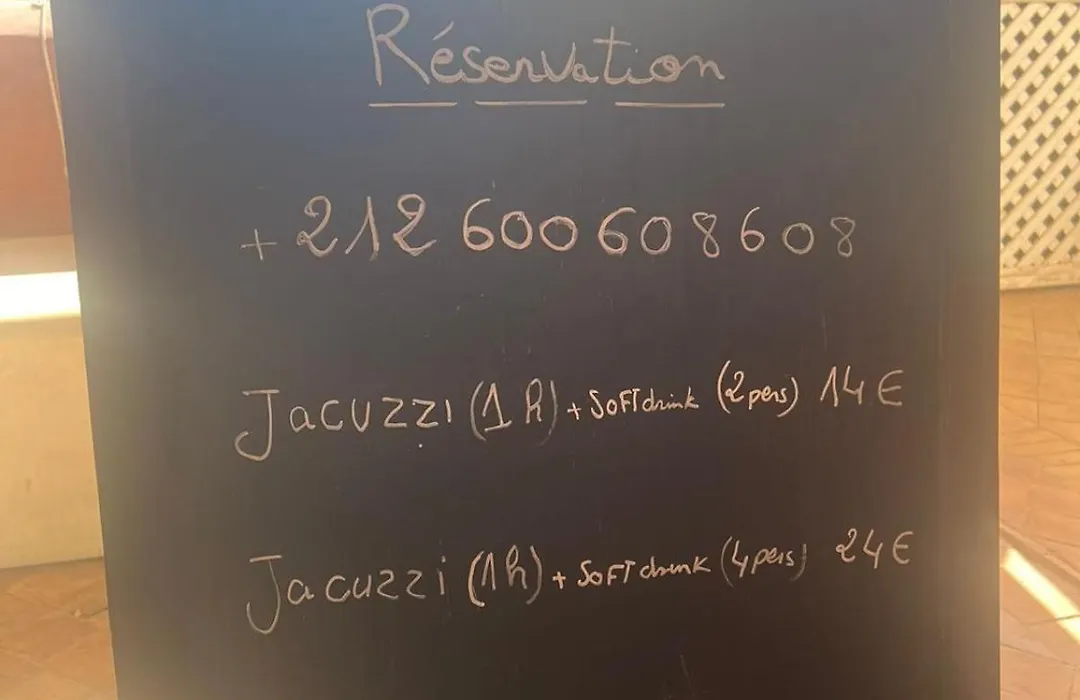 Réservation
+212 600608608
Jacuzzi (1h) + SOFT drink (2pers) 14€
Jacuzzi (1h) + SOFT drink (4pers) 24€